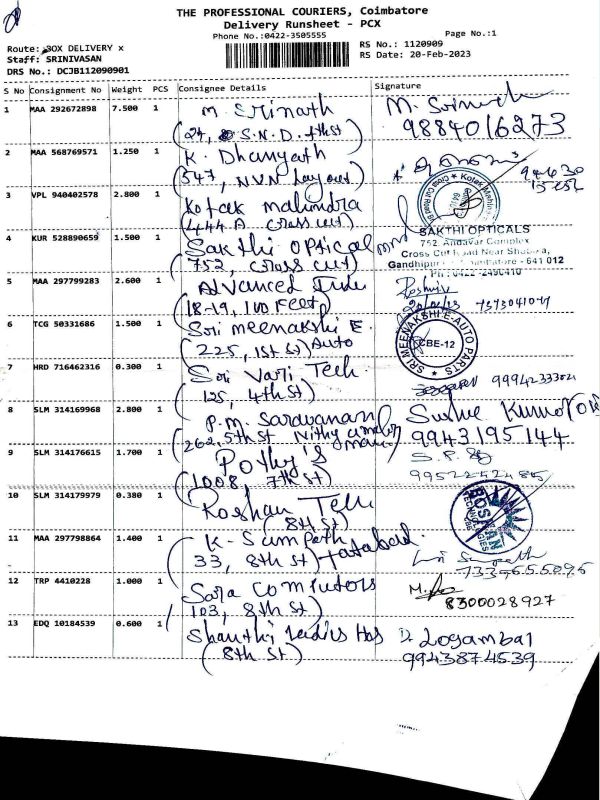 THE PROFESSIONAL COURIERS, Coimbatore
Delivery Runsheet - PCX
Phone No.:0422-3505555
Page No.:1
Route: BOX DELIVERY x
RS No.: 1120909
Staff: SRINIVASAN
RS Date: 20-Feb-2023
DRS No.: DCJB112090901
S No Consignment No Weight PCS Consignee Details Signature
1 MAA 292672898 7.500 1 M. Srinath
M. Srinath
S.N.D. 4th St)
9884016273
2 MAA 568769571 1.250 1 K. Dhanyath
(547, NVN Layout)
3 VPL 940402578 2.800 1 Kotak Mahindra
(444 A. Cross cut)
4 KUR 528890659 1.500 1 Sakthi Optical
(752, Cross cut)
SAKTHI OPTICALS
752 Andavar Complex
Cross Cut Road Near
Gandhipuram Coimbatore - 641 012
Ph : 0422-2490410
5 MAA 297799283 2.600 1 Advanced
(18-19, 100 Feet)
6 TCG 50331686 1.500 1 Sri meenakshi E.
Auto
(225, 1st St)
SRI MEENAKSHI E-AUTO PARTS
CBE-12
7 HRD 716462316 0.300 1 Sri Vari Tech.
125, 4th St)
8 SLM 314169968 2.800 1 P.M. Saravanan
(262, 5th St
9943195144
9 SLM 314176615 1.700 1 Pothy's
(1008, 7th St)
10 SLM 314179979 0.380 1 Roshan Tech
(8th St)
ROSHAN
11 MAA 297798864 1.400 1 K. Sampath
33, 8th St)
12 TRP 4410228 1.000 1 Sara Computors
(103, 8th St)
8300028927
13 EDQ 10184539 0.600 1 Shanthi Ladies Hos
D. Logambal
(8th St)
9943874539